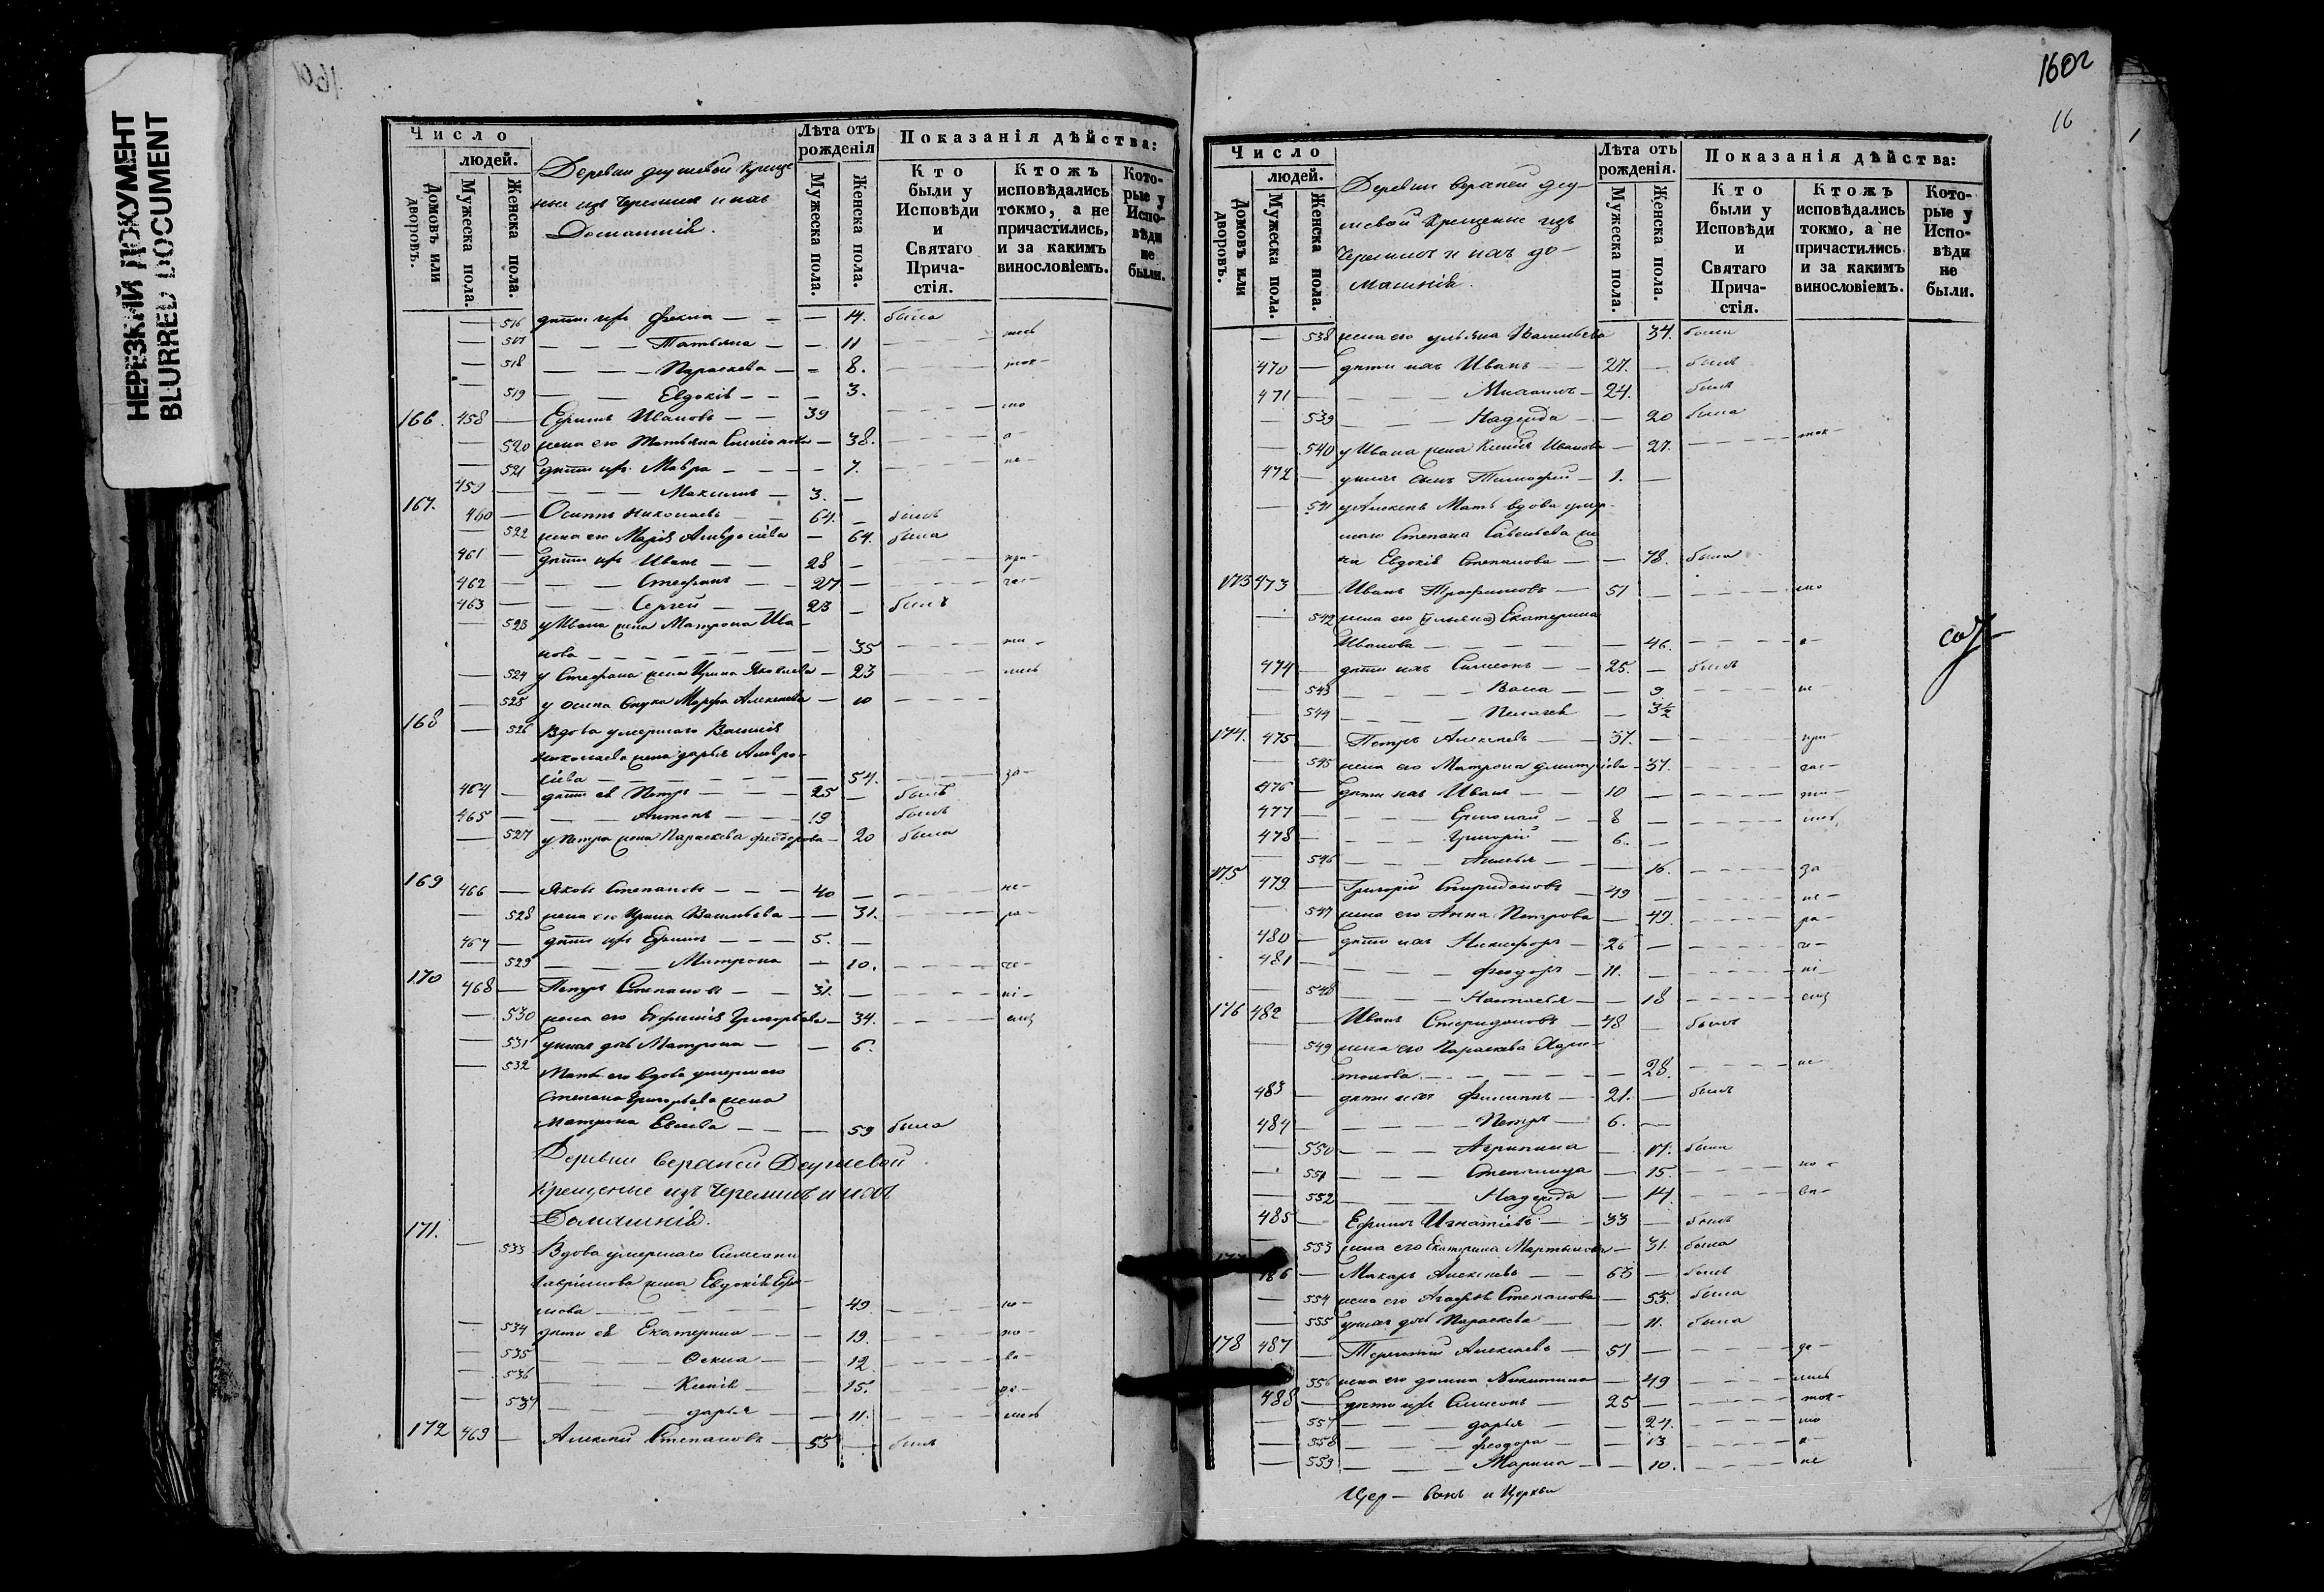 НЕРЕЗКИЙ ДОКУМЕНТ
BLURRED DOCUMENT
Число
людей.
Домовъ или дворовъ.
Мужеска пола.
Женска пола.
Деревни
изъ Черемисъ и ихъ
Домашніе.
Лѣта отъ рожденія
Мужеска пола.
Женска пола.
Показанія дѣйства:
Кто были у Исповѣди и Святаго Причастія.
Ктожъ исповѣдались токмо, а не причастились, и за какимъ винословіемъ.
Которые у Исповѣди не были.
516 дѣти ихъ Фекла — 14. была
517 Татьяна — 11
518 Параскева — 8.
519 Евдокія — 3.
166. 458 Ефимъ Ивановъ 39
520 жена его Татьяна — 38.
521 дѣти ихъ Мавра — 7. не
459 Максимъ 3.
167. 460 Осипъ Николаевъ 64. былъ
522 жена его Марія Амвросіева — 64. была
461 дѣти ихъ Иванъ 28 при
462 Стефанъ 27 час
463 Сергей 23 былъ
523 у Ивана жена Матрона Ива-
нова — 35
524 у Стефана жена Ирина Яковлева — 23
525 у Осипа внука Марфа Алексѣева — 10
168 526 Вдова умершаго Василія
Николаева жена Дарья Амвро-
сіева — 54. за
464 дѣти ея Петръ 25 былъ
465 Антонъ 19 былъ
527 у Петра жена Параскева Феодорова — 20 была
169 466 Яковъ Степановъ 40 не
528 жена его Ирина Васильева — 31. ра
467 дѣти ихъ Ефимъ 5.
529 Матрона — 10. че
170 468 Петръ Степановъ 31. ні
530 жена его Евфимія Григорьева — 34. емъ
531 у нихъ дочь Матрона — 6.
532 Мать его вдова умершаго
Степана Григорьева жена
Матрона — 59 была
Деревни Верхней
Крещеные изъ Черемисъ и ихъ
Домашніе.
171. 533 Вдова умершаго Симеона
Гаврилова жена Евдокія Ефи-
мова — 49
534 дѣти ея Екатерина — 19.
535 Фекла — 12
536 Ксенія — 15.
537 Дарья — 11.
172 469 Алексѣй Степановъ 55 былъ
1602
16
Число
людей.
Домовъ или дворовъ.
Мужеска пола.
Женска пола.
Деревни Верхней
Крещеные изъ
Черемисъ и ихъ до-
машніе.
Лѣта отъ рожденія.
Мужеска пола.
Женска пола.
Показанія дѣйства:
Кто были у Исповѣди и Святаго Причастія.
Ктожъ исповѣдались токмо, а не причастились и за какимъ винословіемъ.
Которые у Исповѣди не были.
538 жена его Ульяна Васильева 34. была
470 дѣти ихъ Иванъ 27. былъ
471 Михаилъ 24. былъ
539 Надежда — 20 была
540 у Ивана жена Ксенія Иванова — 27. ток
472 у нихъ сынъ Тимофей 1.
541 у Алексѣя Мать вдова умер-
шаго Степана Савельева же
на Евдокія Степанова — 78. была
173 473 Иванъ Трофимовъ 51 мо
542 жена его (Ульяна) Екатерина
Иванова — 46. а
474 дѣти ихъ Симеонъ 25. былъ
543 Васса — 9. не
544 Пелагея — 3½
174. 475 Петръ Алексѣевъ 37. при
545 жена его Матрона Дмитріева — 37. час
476 дѣти ихъ Иванъ 10 ти
477 Ермолай 8
478 Григорій 6.
546 — 16. за
175 479 Григорій Спиридоновъ 49 не
547 жена его Анна Петрова — 49. ра
480 дѣти ихъ Никифоръ 26 че
481 Феодоръ 11. ні
548 Настасья — 18 емъ
176 482 Иванъ Спиридоновъ 48 былъ
549 жена его Параскева Хари-
тонова — 28. не
483 дѣти ихъ Филиппъ 21. былъ
484 Петръ 6.
550 Агрипина — 17. была
551 Степанида — 15.
552 Надежда — 14.
485 Ефимъ Игнатіевъ 33 былъ
553 жена его Екатерина Мартынова — 31. была
486 Макаръ Алексѣевъ 63 былъ
554 жена его Агафья Степанова — 55. была
555 у нихъ дочь Параскева — 11. была
178 487 Терентій Алексѣевъ 51
556 жена его Домна Никитина — 49
488 дѣти ихъ Симеонъ 25 ток
557 Дарья — 24. мо
558 Феодора — 13 а
559 Марина — 10. не
и Церкви